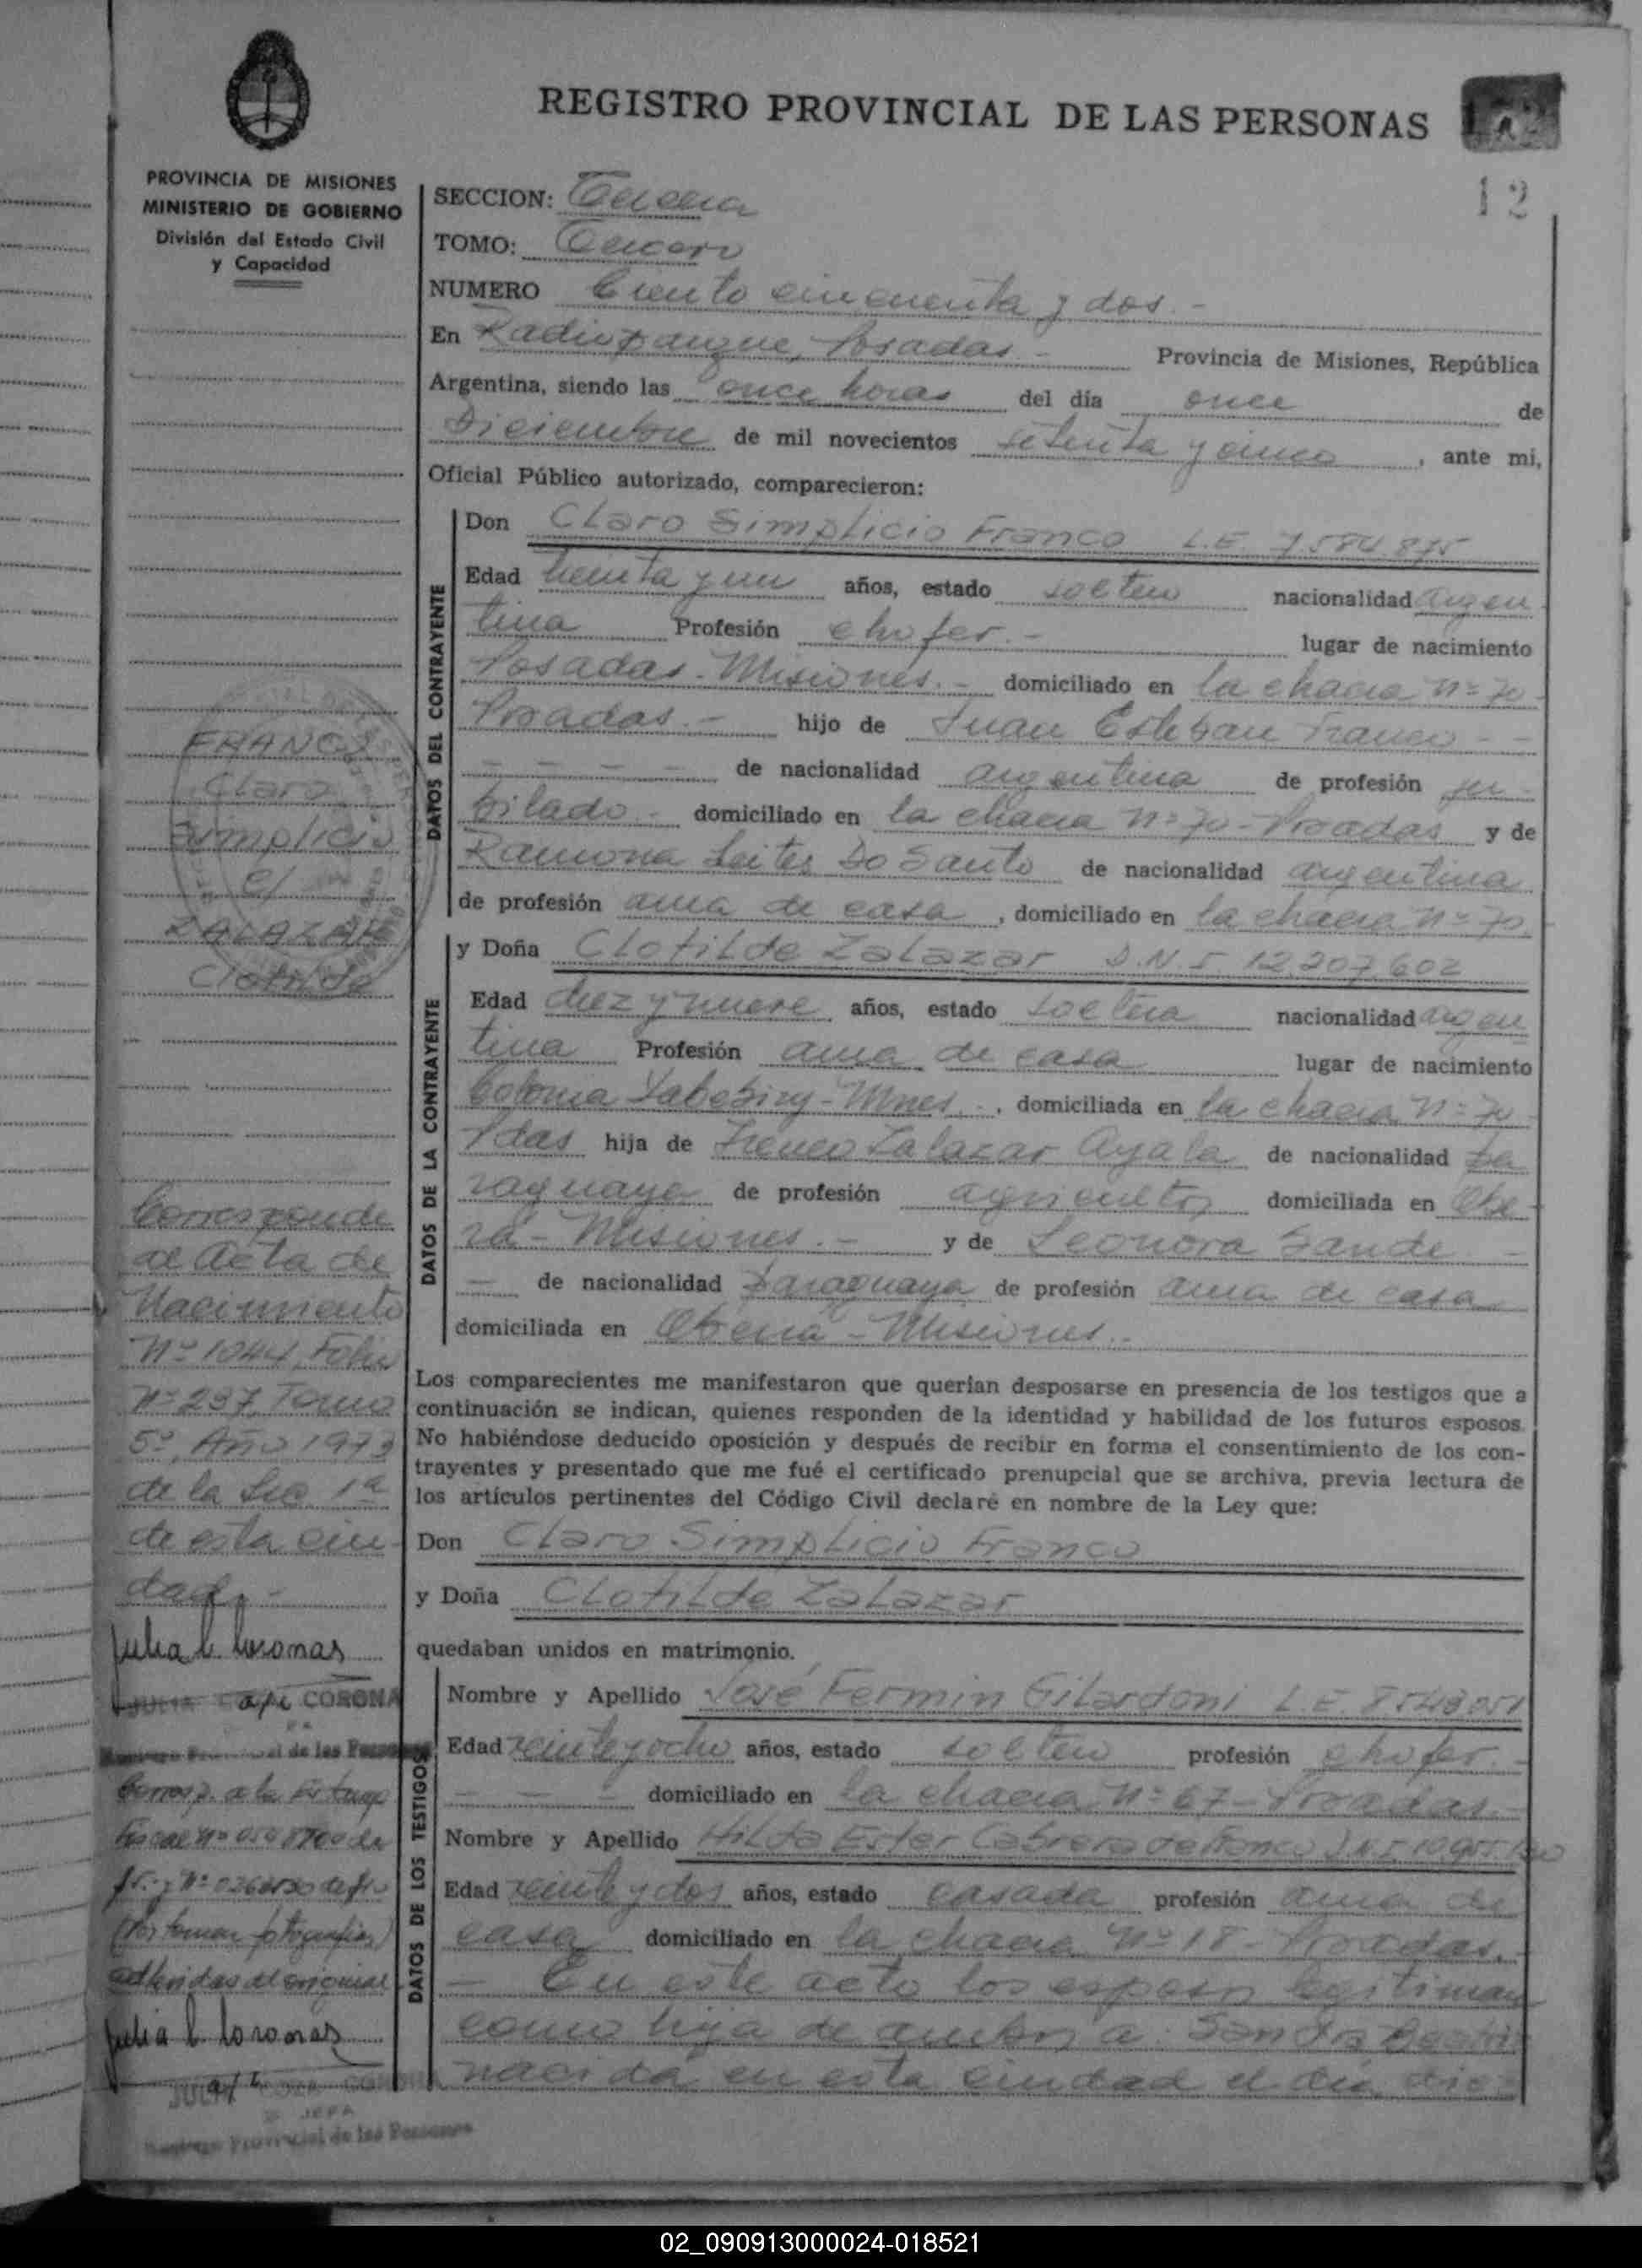 REGISTRO PROVINCIAL DE LAS PERSONAS
12
PROVINCIA DE MISIONES
MINISTERIO DE GOBIERNO
División del Estado Civil
y Capacidad
SECCION: Tercera
TOMO: Tercero
NUMERO Ciento cincuenta y dos.-
En Radioparque, Posadas - Provincia de Misiones, República
Argentina, siendo las once horas del día once de
Diciembre de mil novecientos setenta y cinco, ante mi,
Oficial Público autorizado, comparecieron:
DATOS DEL CONTRAYENTE
Don Claro Simplicio Franco L.E. 7.584.875
Edad treinta y un años, estado soltero nacionalidad argen
tina Profesión chofer.- lugar de nacimiento
Posadas - Misiones.- domiciliado en la chacra nº 70-
Posadas.- hijo de Juan Esteban Franco - -
- - - - de nacionalidad argentina de profesión ju-
bilado - domiciliado en la chacra nº 70 - Posadas y de
Ramona Leites Do Santo de nacionalidad argentina
de profesión ama de casa, domiciliado en la chacra nº 70.
DATOS DE LA CONTRAYENTE
y Doña Clotilde Zalazar D.N.I 12.207.602
Edad diez y nueve años, estado soltera nacionalidad argen
tina Profesión ama de casa lugar de nacimiento
Colonia Yabebiry - Mnes., domiciliada en la chacra nº 70
Pdas hija de Ireneo Zalazar Ayala de nacionalidad pa
raguaya de profesión agricultor domiciliada en Obe-
rá - Misiones.- y de Leonora Sande -
- de nacionalidad paraguaya de profesión ama de casa
domiciliada en Oberá - Misiones.-
Los comparecientes me manifestaron que querían desposarse en presencia de los testigos que a
continuación se indican, quienes responden de la identidad y habilidad de los futuros esposos.
No habiéndose deducido oposición y después de recibir en forma el consentimiento de los con-
trayentes y presentado que me fué el certificado prenupcial que se archiva, previa lectura de
los artículos pertinentes del Código Civil declaré en nombre de la Ley que:
Don Claro Simplicio Franco
y Doña Clotilde Zalazar
quedaban unidos en matrimonio.
DATOS DE LOS TESTIGOS
Nombre y Apellido José Fermin Gilardoni L.E. 8.548.051
Edad veinte y ocho años, estado soltero profesión chofer.-
- - - domiciliado en la chacra nº 67 - Posadas.-
Nombre y Apellido Hilda Ester Cabrera de Franco D.N.I
Edad veinte y dos años, estado casada profesión ama de
casa domiciliado en la chacra nº 18 - Posadas.-
- En este acto los esposos legitiman
como hija de ambos a: Sandra Beatriz
nacida en esta ciudad el día diez
FRANCO
Claro
Simplicio
c/
ZALAZAR
Clotilde
Corresponde
al Acta de
Nacimiento
Nº 1044 Folio
Nº 237 Tomo
5º, Año 1973
de la Sec. 1ª
de esta ciu-
dad.-
Julia C. Coronas
CORONA
Registro Provincial de las Personas
Corresp. a la Estamp
Fiscal nº
(Por tomar fotografias)
adheridas al original
Julia C. Coronas
JEFA
Registro Provincial de las Personas
02_090913000024-018521